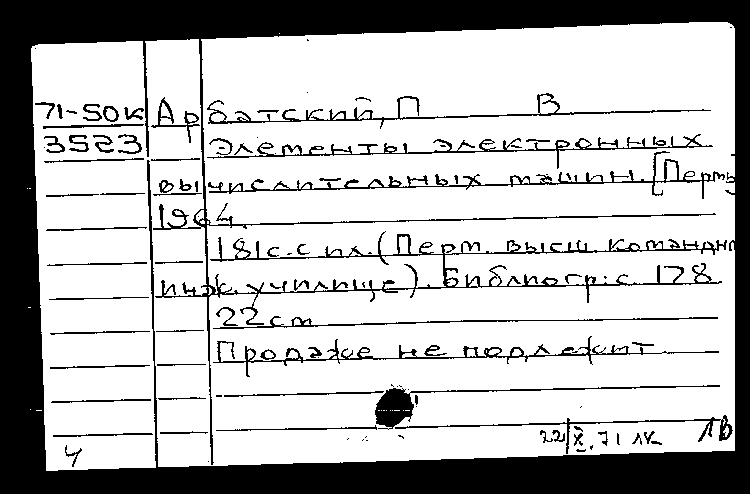 71-50к Арбатский, П В
3523 Элементы электронных
вычислительных машин. [Пермь
1964.
181с. с ил. (Перм. высш. командн
инж. училище). Библиогр: с 178
22 см
Продаже не подлежит
22/X.71 лк 1В
Ч